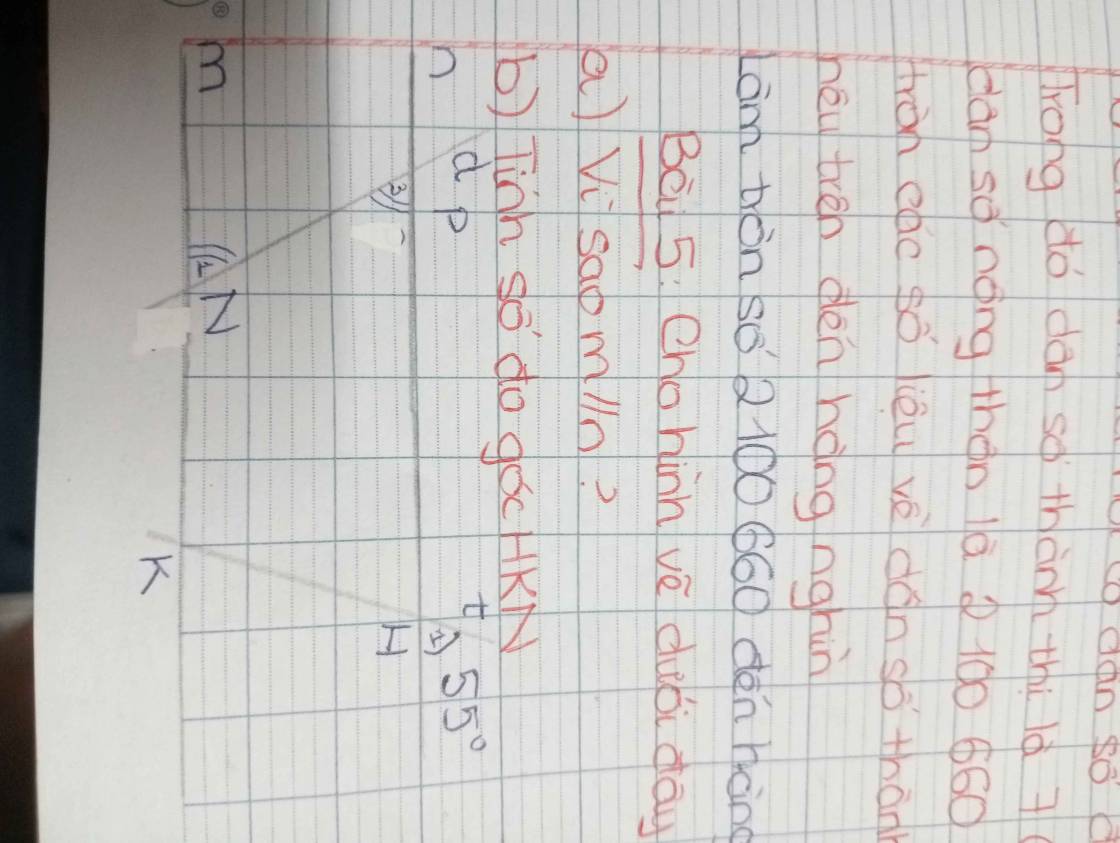 Trong đó dân số thành thị là 7
dân số nông thôn là 2 100 660
tròn các số liệu về dân số thành
nêu trên đến hàng nghìn
Làm tròn số 2 100 660 đến hàng
Bài 5: Cho hình vẽ dưới đây
a) Vì sao m//n?
b) Tính số đo góc HKN
d
t
n
P
1
55°
3
H
m
1
N
K
®